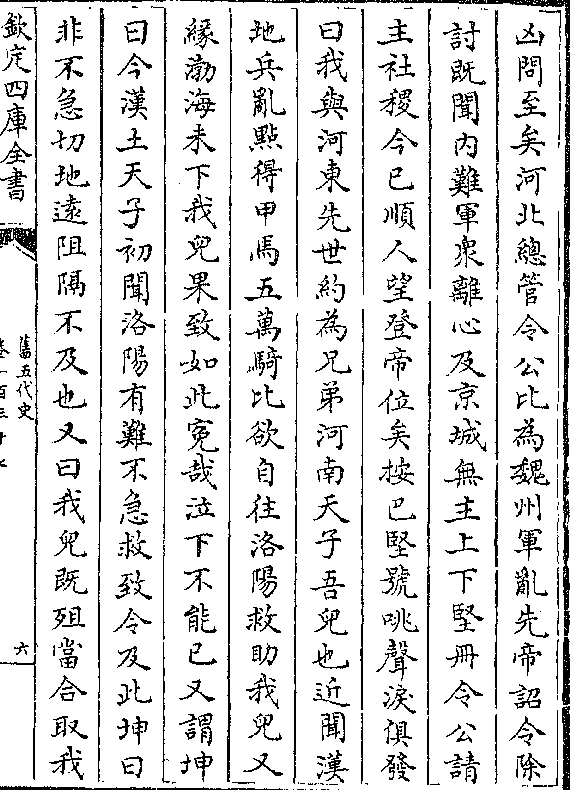 凶問至矣河北總管令公比為魏州軍亂先帝詔令除
討既聞内難軍衆離心及京城無主上下堅冊令公請
主社稷今已順人望登帝位矣按巴堅號咷聲淚俱發
曰我與河東先世約為兄弟河南天子吾兒也近聞漢
地兵亂㸃得甲馬五萬騎比欲自往洛陽救助我兒又
緣渤海未下我兒果致如此寃哉泣下不能已又謂坤
曰今漢土天子初聞洛陽有難不急救致令及此坤曰
非不急切地遠阻隔不及也又曰我兒既殂當合取我
欽定四庫全書
舊五代史
卷一百三十七
六